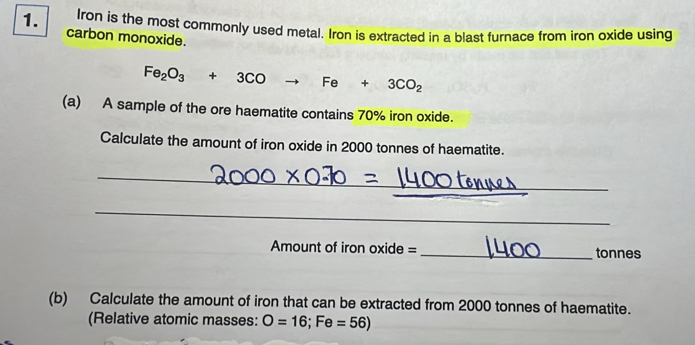 1. Iron is the most commonly used metal. Iron is extracted in a blast furnace from iron oxide using
carbon monoxide.
Fe₂O₃ + 3CO → Fe + 3CO₂
(a) A sample of the ore haematite contains 70% iron oxide.
Calculate the amount of iron oxide in 2000 tonnes of haematite.
2000 x 0.70 = 1400 tonnes
Amount of iron oxide = 1400 tonnes
(b) Calculate the amount of iron that can be extracted from 2000 tonnes of haematite.
(Relative atomic masses: O = 16; Fe = 56)